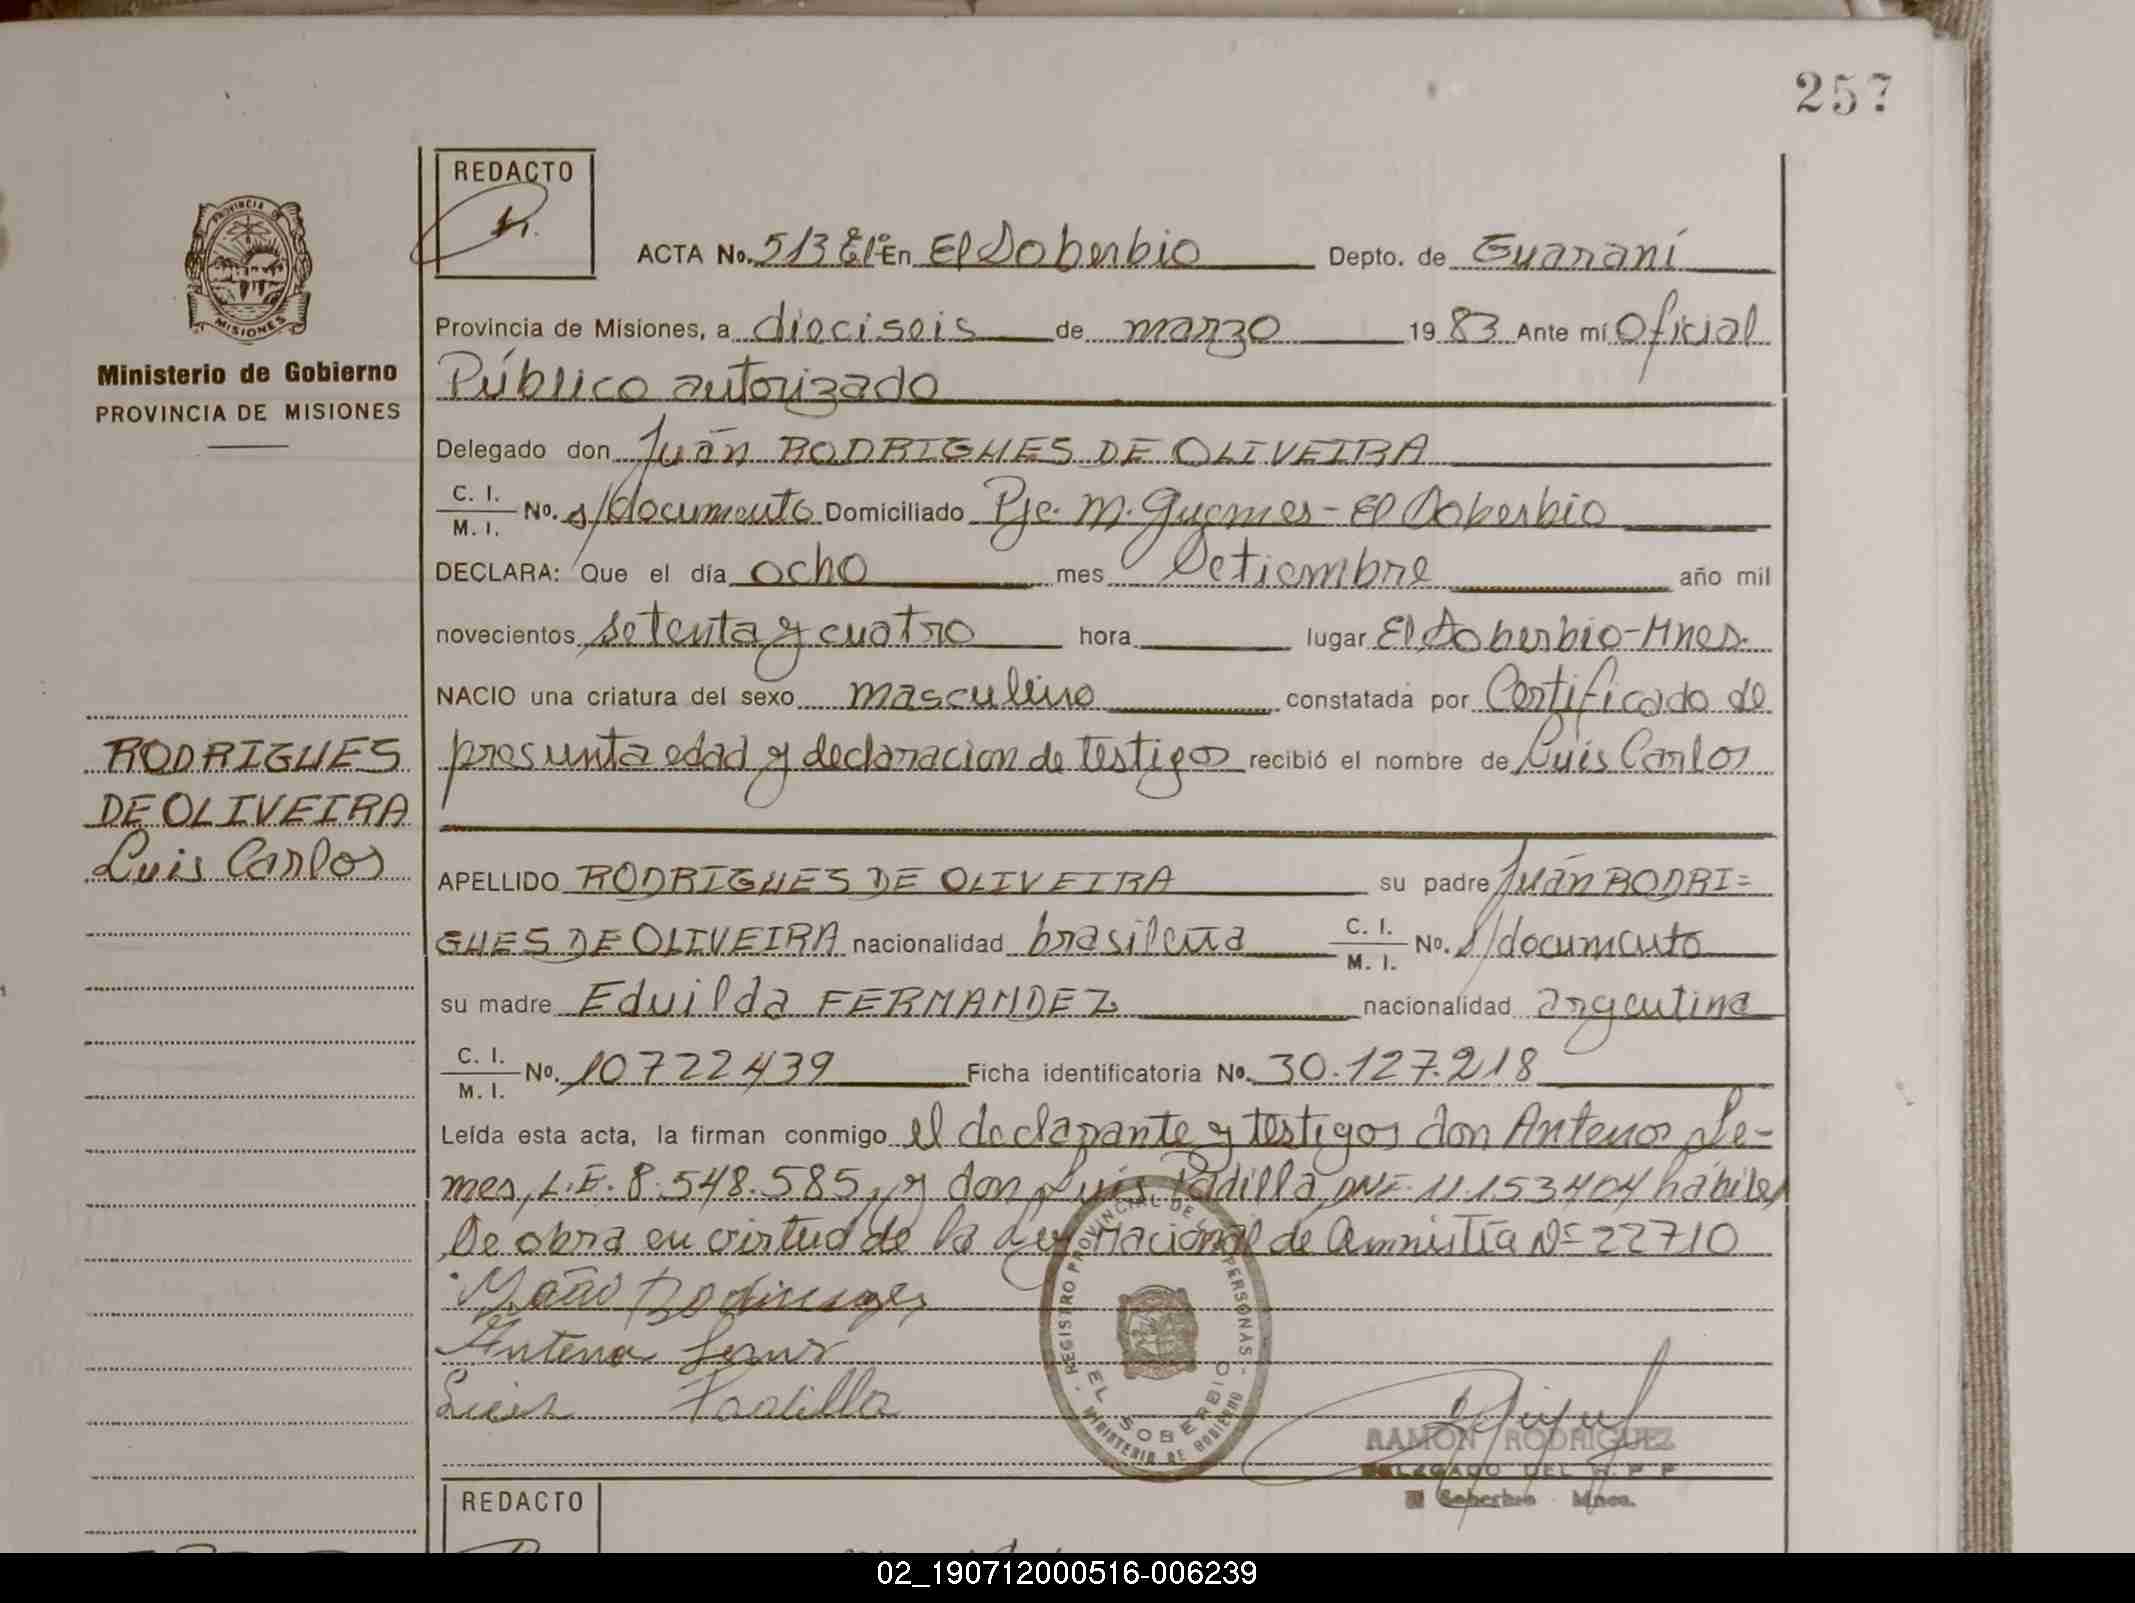 257
REDACTO
ACTA No. 513 En El Soberbio Depto. de Guaraní
Provincia de Misiones, a dieciseis de marzo 1983 Ante mí Oficial
Público autorizado
Delegado don Juán RODRIGUES DE OLIVEIRA
C. I.
M. I. No. s/documento Domiciliado Pje. M. Guemes - El Soberbio
DECLARA: Que el día ocho mes Setiembre año mil
novecientos setenta y cuatro hora lugar El Soberbio-Mnes.
NACIO una criatura del sexo masculino constatada por Certificado de
presunta edad y declaracion de testigos recibió el nombre de Luis Carlos
APELLIDO RODRIGUES DE OLIVEIRA su padre Juán RODRI=
GUES DE OLIVEIRA nacionalidad brasileña C. I. M. I. No. s/documento
su madre Eduilda FERNANDEZ nacionalidad argentina
C. I.
M. I. No. 10722439 Ficha identificatoria No. 30.127.218
Leída esta acta, la firman conmigo el declarante y testigos don Antenor Le-
mes, L.E. 8.548.585, y don Luis Padilla, DNI. 11.153404 hábiles
Se obra en virtud de la Ley Nacional de Amnistía Nº 22710
Antenor Lemes
Luis Padilla
REGISTRO PROVINCIAL DE LAS PERSONAS
EL SOBERBIO
MINISTERIO DE GOBIERNO
RAMON RODRIGUEZ
DELEGADO DEL R. P. P.
El Soberbio - Mnes.
PROVINCIA DE
MISIONES
Ministerio de Gobierno
PROVINCIA DE MISIONES
RODRIGUES
DE OLIVEIRA
Luis Carlos
REDACTO
02_190712000516-006239